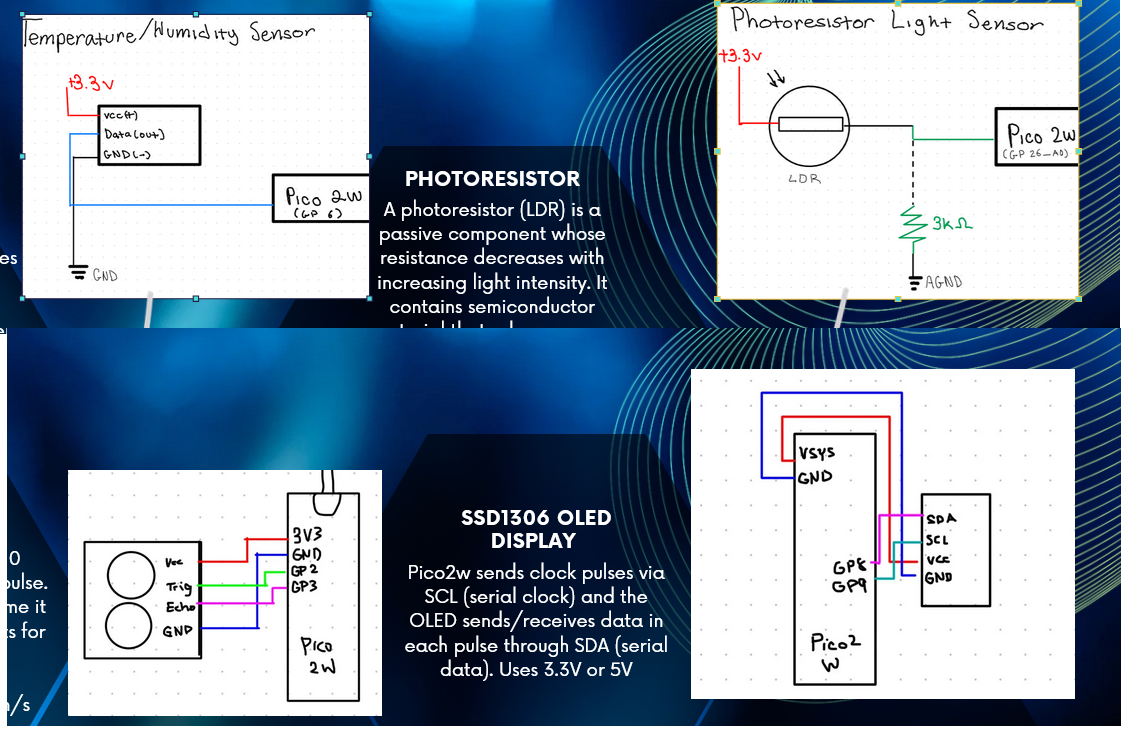 Temperature/Humidity Sensor
+3.3v
Vcc(+)
Data(out)
GND(-)
Pico 2W
(GP 6)
GND
es
PHOTORESISTOR
A photoresistor (LDR) is a
passive component whose
resistance decreases with
increasing light intensity. It
contains semiconductor
Photoresistor Light Sensor
+3.3v
LDR
Pico 2W
(GP 26_A0)
3kΩ
AGND
0
pulse.
me it
ts for
n/s
Vcc
Trig
Echo
GND
3V3
GND
GP2
GP3
Pico
2W
SSD1306 OLED
DISPLAY
Pico2w sends clock pulses via
SCL (serial clock) and the
OLED sends/receives data in
each pulse through SDA (serial
data). Uses 3.3V or 5V
VSYS
GND
GP8
GP9
Pico2
W
SDA
SCL
VCC
GND